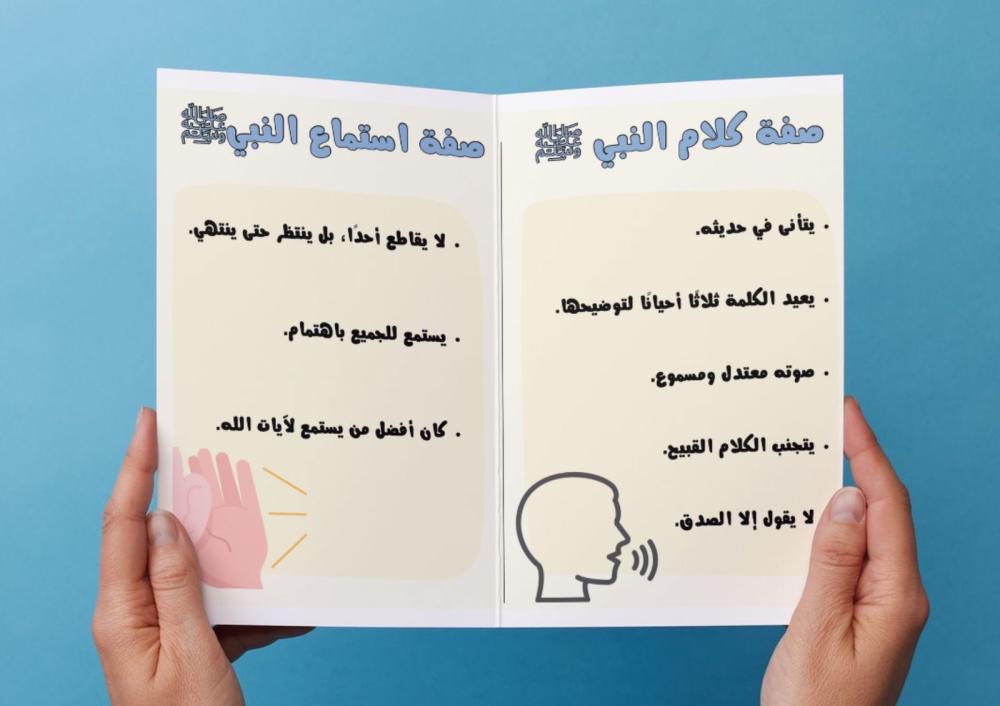 صفة كلام النبي ﷺ
. يتأنى في حديثه.
. يعيد الكلمة ثلاثًا أحيانًا لتوضيحها.
. صوته معتدل ومسموع.
. يتجنب الكلام القبيح.
لا يقول إلا الصدق.
صفة استماع النبي ﷺ
. لا يقاطع أحدًا، بل ينتظر حتى ينتهي.
. يستمع للجميع باهتمام.
. كان أفضل من يستمع لآيات الله.